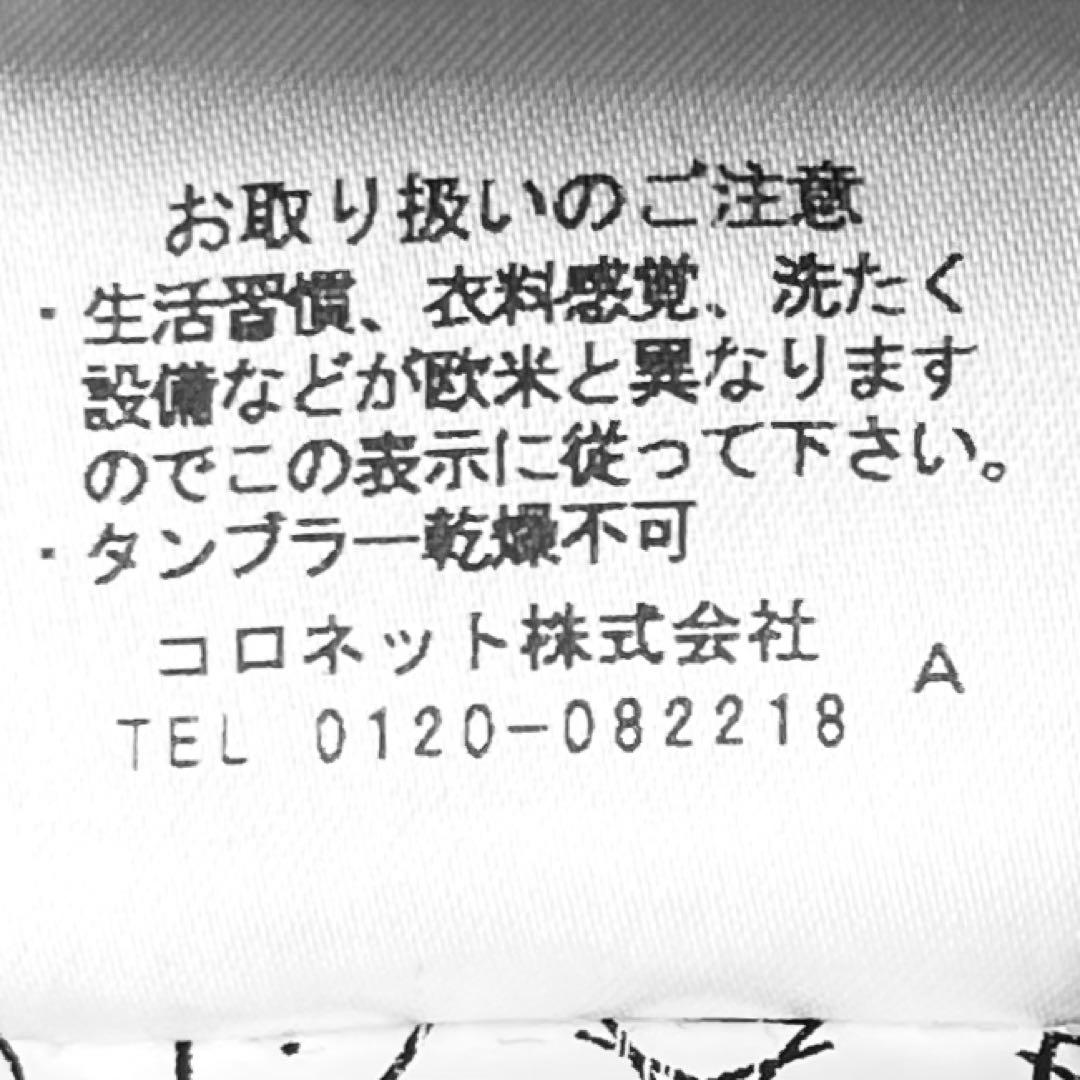 お取り扱いのご注意
・生活習慣、衣料感覚、洗たく
設備などが欧米と異なります
のでこの表示に従って下さい。
・タンブラー乾燥不可
コロネット株式会社
A
TEL 0120-082218